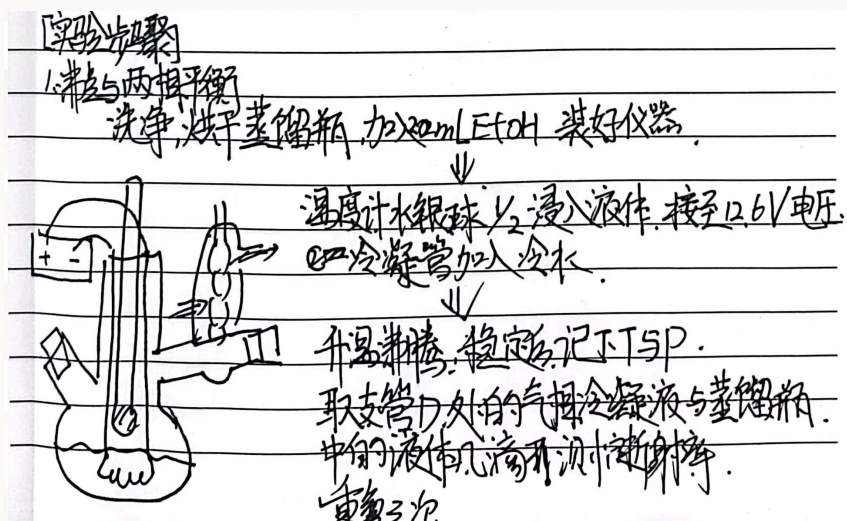 [实验步骤]
1.沸点与两相平衡
洗净,烘干蒸馏瓶,加入20mL EtOH 装好仪器.
⇓
温度计水银球1/2浸入液体.接至12.6V电压.
冷凝管加入冷水.
⇓
+ -
升温沸腾,稳定后,记下T与P.
取支管D处的气相冷凝液与蒸馏瓶.
中的液体几滴 测折射率.
重复3次